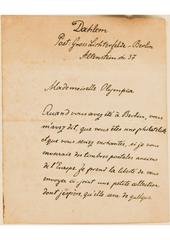 Dahlem
Post. Gross Lichterfelde - Berlin
Altenstein str 37
Mademoiselle Olympia
Quand vous avez été à Berlin, vous
m'avez dit que vous êtes une philatéliste
et que vous seriez enchantée, si je vous
enverrais des timbres postales anciens
de l'Europe. Je prend la liberté de vous
envoyer ci joint une petite collection
dont j'espère, qu'elle sera de quelque